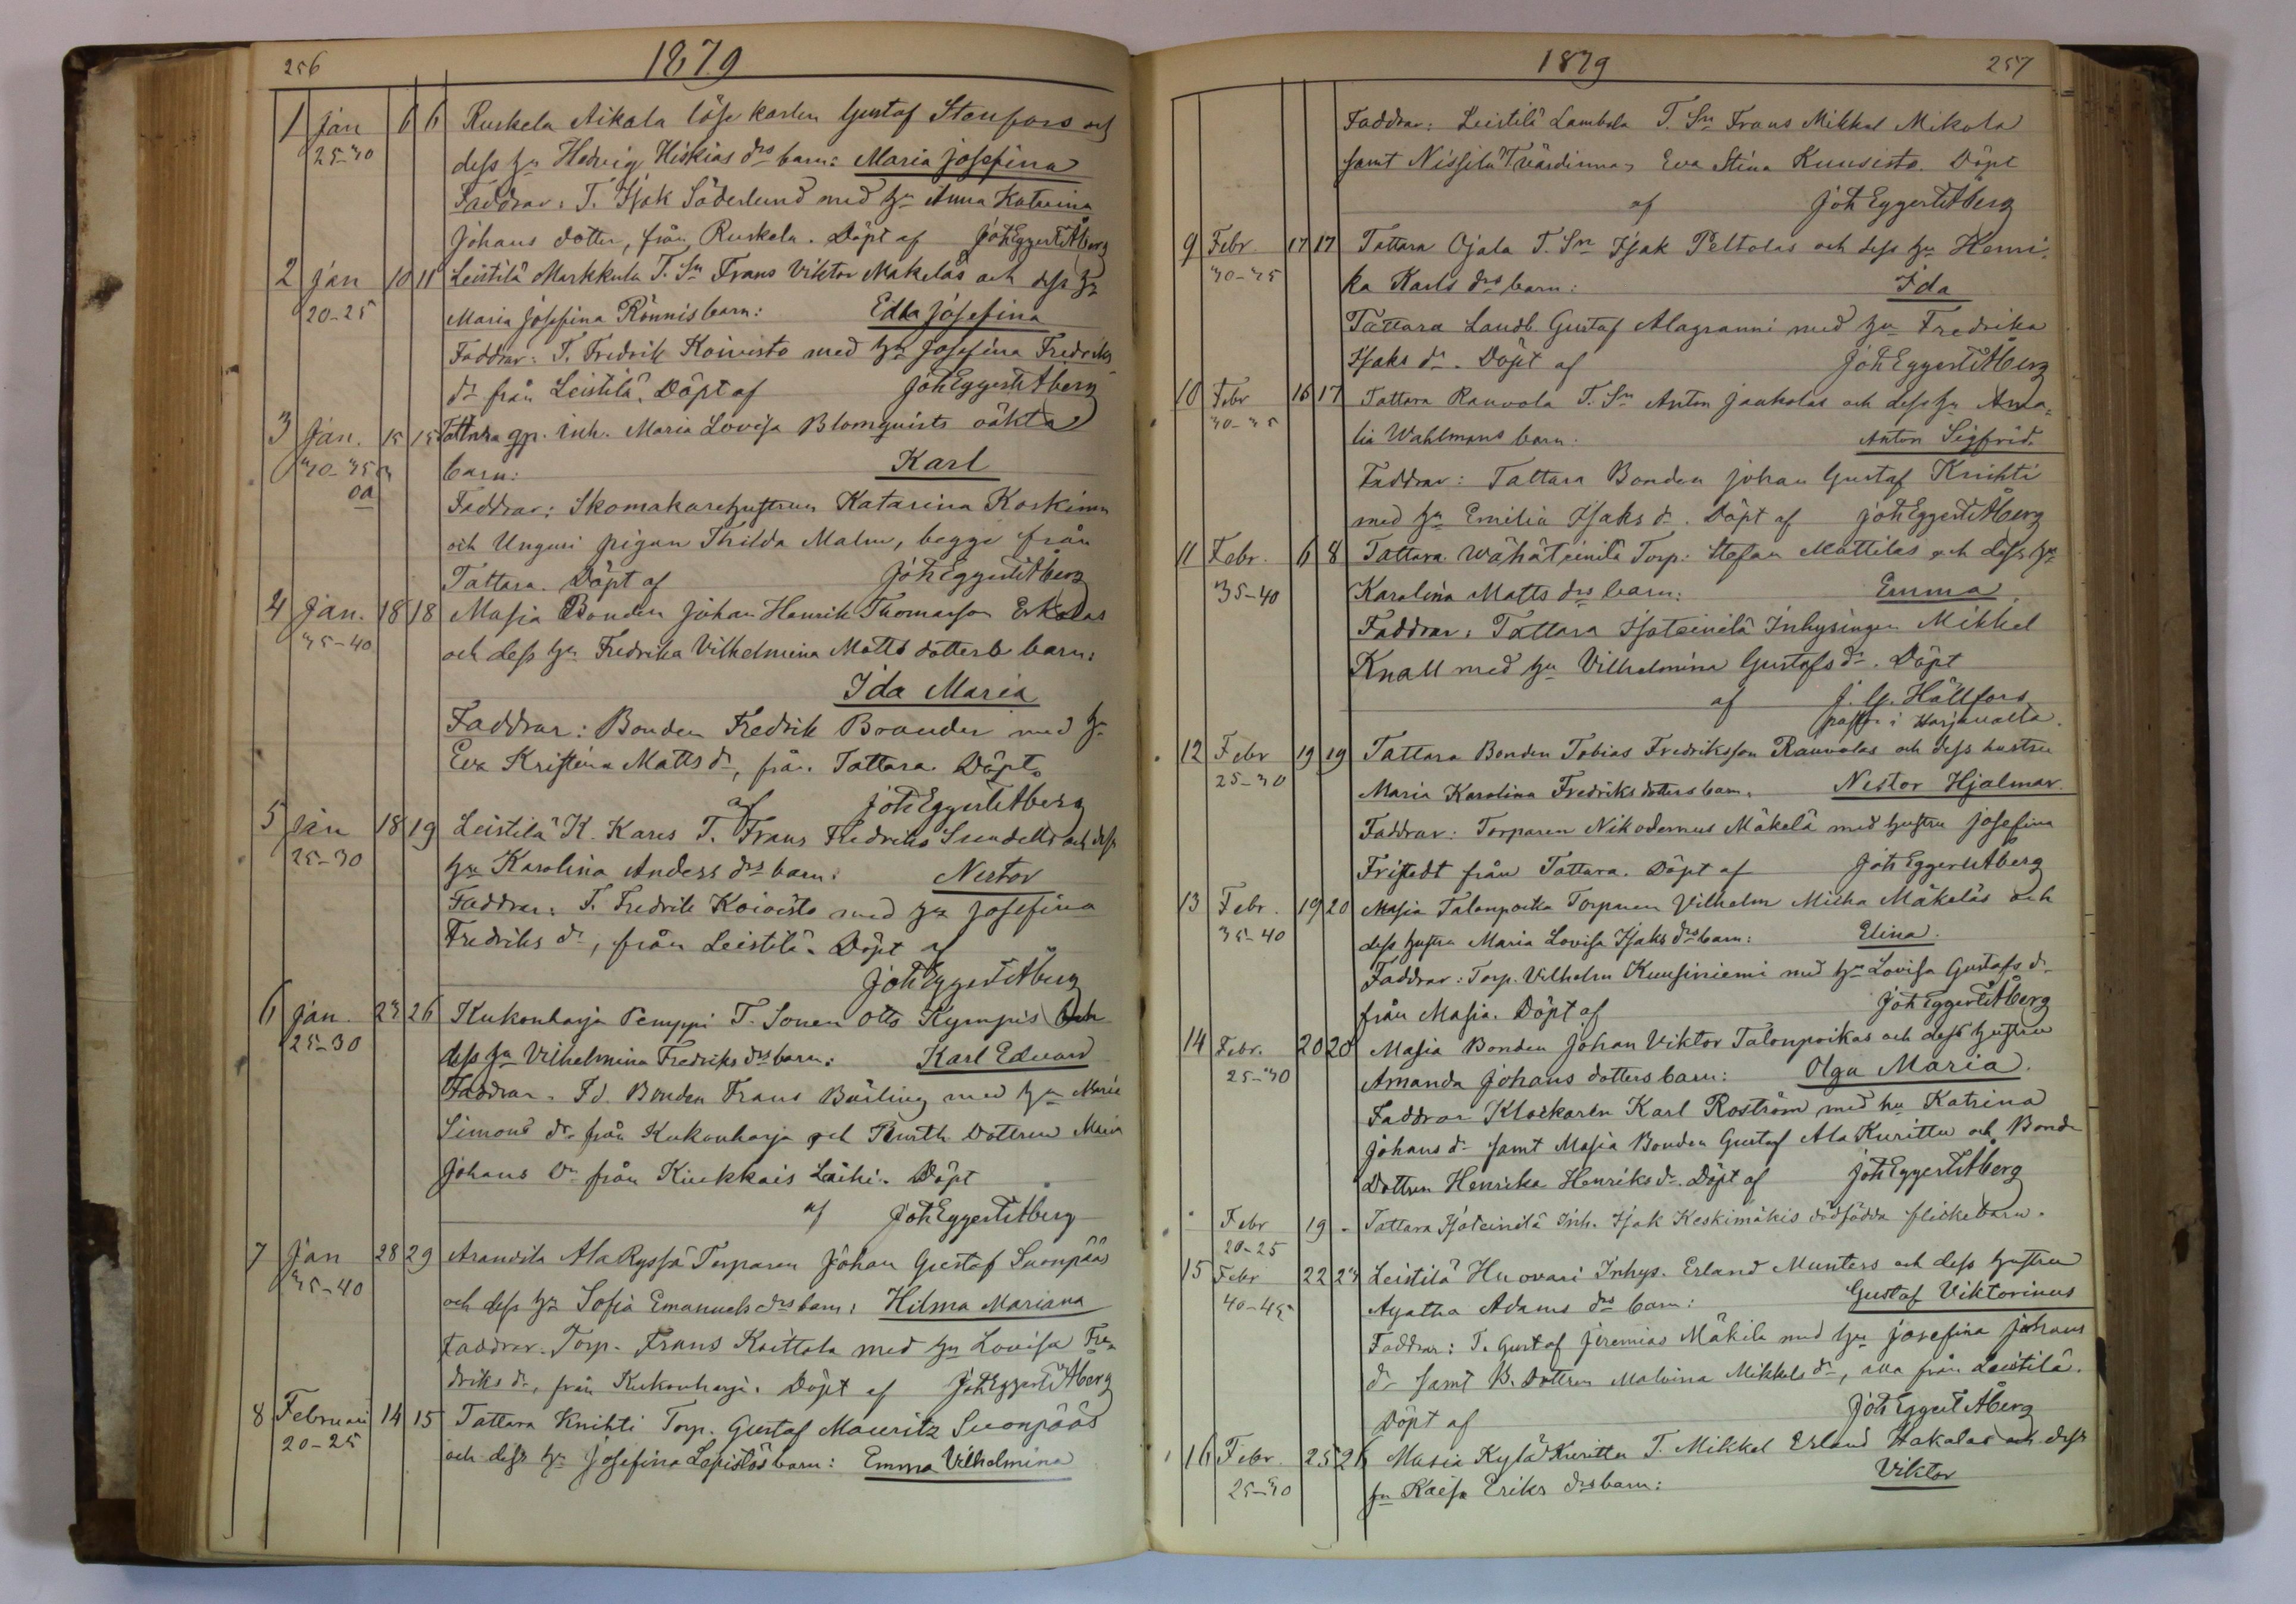 256
1879
1 Jan 6 6 Ruskela Aikala löse karlen Gustaf Stenfors och
25-30 dess hu Hedvig Hiskias drs barn: Maria Josefina
Faddrar: T. Isak Söderlund med hu Anna Katrina
Johans dotter, från Ruskela. Döpt af Joh Eggert Åberg
2 Jan 10 11 Leistilä Markkula T. Sn Frans Viktor Mäkeläs och dess hu
20-25 Maria Josefina Rönnis barn: Edla Josefina
Faddrar: T. Fredrik Koivisto med hu Josefina Fredriks
dr från Leistilä. Döpt af Joh Eggert Åberg
3 Jan. 15 15 Tattara gp. inh. Maria Lovisa Blomquists oäkta
30-35 barn: Karl
oä
Faddrar: Skomakarehustrun Katarina Koskinen
och Unguri pigan Thilda Malm, begge från
Tattara. Döpt af Joh Eggert Åberg
4 Jan. 18 18 Masia Bonden Johan Henrik Thomasson Erkolas
35-40 och dess hu Fredrika Vilhelmina Matts dotters barn:
Ida Maria
Faddrar: Bonden Fredrik Brander med hu
Eva Kristina Matts dr, från Tattara. Döpt
af Joh Eggert Åberg
5 Jan 18 19 Leistilä K. Kares T. Frans Fredriks Sundells och dess
25-30 hu Karolina Anders drs barn: Nestor
Faddrar: T. Fredrik Koivisto med hu Josefina
Fredriks dr, från Leistilä. Döpt af
Joh Eggert Åberg
6 Jan. 23 26 Kukonharja Pemppi T. Sonen Otto Kympis och
25-30 dess hu Vilhelmina Fredriks drs barn: Karl Eduard
Faddrar. Fd. Bonden Frans Bärling med hu Maria
Simons dr från Kukonharja och Dottren Maria
Johans dr från Kiukkais Laihi. Döpt
af Joh Eggert Åberg
7 Jan 28 29 Arantila Ala Ryssä Torparen Johan Gustaf Suonpääs
35-40 och dess hu Sofia Emanuels drs barn: Hilma Mariana
Faddrar. Torp. Frans Kaittola med hu Lovisa Fre-
driks dr, från Kukonharja. Döpt af Joh Eggert Åberg
8 Februari 14 15 Tattara Knihti Torp. Gustaf Mauritz Suonpääs
20-25 och dess hu Josefina Lepistös barn: Emma Vilhelmina
1879
257
Faddrar: Leistilä Lambala T. Sn Frans Mikkel Mikola
samt Nissilä T värdinnan Eva Stina Kuusisto. Döpt
af Joh Eggert Åberg
9 Febr. 17 17 Tattara Ojala T. Sn Isak Peltolas och dess hu Henri-
30-35 ka Karls drs barn: Ida
Tattara Landb. Gustaf Alagranni med hu Fredrika
Isaks dr. Döpt af Joh Eggert Åberg
10 Febr 16 17 Tattara Rauvola T. Sn Anton Jauholas och dess hu Ama-
30-35 lia Wahlmans barn. Anton Sigfrid.
Faddrar: Tattara Bonden Johan Gustaf Knihti
med hu Emilia Isaks dr. Döpt af Joh Eggert Åberg
11 Febr. 6 8 Tattara Wähäteinilä Torp. Stefan Mattilas och dess hu
35-40 Karolina Matts drs barn: Emma.
Faddrar: Tattara Isoteinilä Inhysingen Mikkel
Knall med hu Vilhelmina Gustafs dr. Döpt
af J. G. Hällfors
pastor i Harjavalta.
12 Febr 19 19 Tattara Bonden Tobias Fredriksson Rauvolas och dess hustru
25-30 Maria Karolina Fredriksdotters barn. Nestor Hjalmar.
Faddrar: Torparen Nikodemus Mäkelä med hustru Josefina
Fristedt från Tattara. Döpt af Joh Eggert Åberg
13 Febr. 19 20 Masia Talonpoika Torparen Vilhelm Micha Mäkeläs och
35-40 dess hustru Maria Lovisa Isaks drs barn: Elina.
Faddrar: Torp. Vilhelm Kuusiniemi med hu Lovisa Gustafs dr
från Masia. Döpt af Joh Eggert Åberg
14 Febr. 20 20 Masia Bonden Johan Viktor Talonpoikas och dess hustru
25-30 Amanda Johans dotters barn: Olga Maria.
Faddrar Klockaren Karl Roström med hu Katrina
Johans dr samt Masia Bonden Gustaf Ala Kurittu och Bonde
Dottren Henrika Henriks dr. Döpt af Joh Eggert Åberg
Febr 19 - Tattara Isoteinilä Inh. Isak Keskimäkis dödfödda flickebarn.
20-25
15 Febr 22 23 Leistilä Huovari Inhys. Erland Munters och dess hustru
40-45 Agatha Adams drs barn: Gustaf Viktorinus
Faddrar: T. Gustaf Jeremias Mäkilä med hu Josefina Johans
dr samt B. Dottren Malvina Mikkels dr, alla från Leistilä.
Döpt af Joh Eggert Åberg
16 Febr. 25 26 Masia Kylä Kurittu T. Mikkel Erland Hakalas och dess
25-30 hu Kaisa Eriks drs barn: Viktor